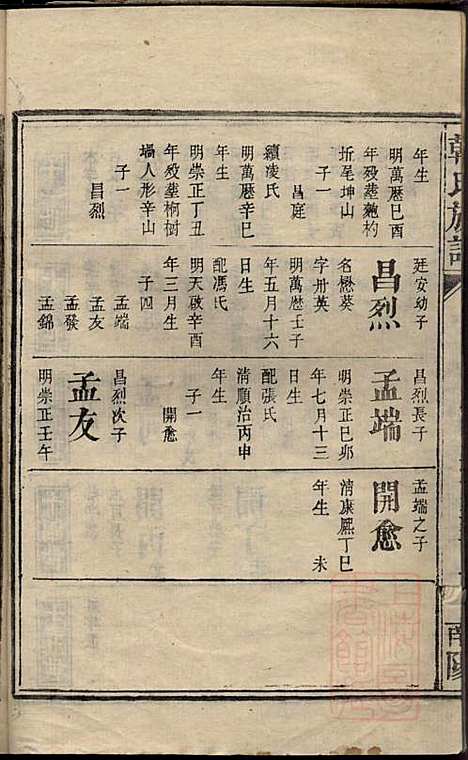 韓氏族譜
年生
明萬曆巳酉
年殁𦵏麭杓
折尾坤山
子一
昌庭
續凌氏
明萬曆辛巳
年生
明崇正丁丑
年殁𦵏柯樹
塥人形辛山
子一
昌烈
廷安幼子
昌烈
名懋葵
字卅英
明萬曆壬子
年五月十六
日生
配馮氏
明天啟辛酉
年三月生
子四
孟端
孟友
孟發
孟錦
昌烈長子
孟端
明崇正巳夘
年七月十三
日生
配張氏
清順治丙申
年生
子一
開愈
昌烈次子
孟友
明崇正壬午
孟端之子
開愈
清康熈丁巳
年生 未
南陽